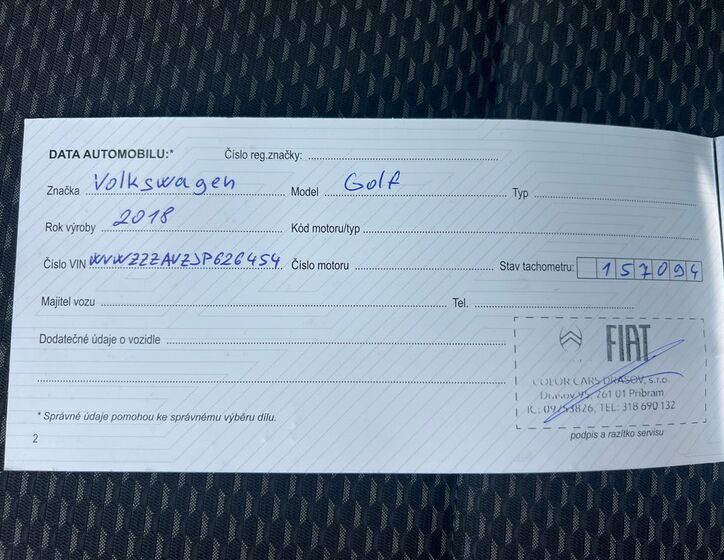 DATA AUTOMOBILU:* Číslo reg.značky:
Značka Volkswagen Model Golf Typ
Rok výroby 2018 Kód motoru/typ
Číslo VIN WVWZZZAUZJP626454 Číslo motoru Stav tachometru: 157094
Majitel vozu Tel.
Dodatečné údaje o vozidle
FIAT
COLOR CARS DRASOV, s.r.o.
Drasov 95, 261 01 Příbram
IČ: 09753826, TEL: 318 690 132
* Správné údaje pomohou ke správnému výběru dílu.
podpis a razítko servisu
2